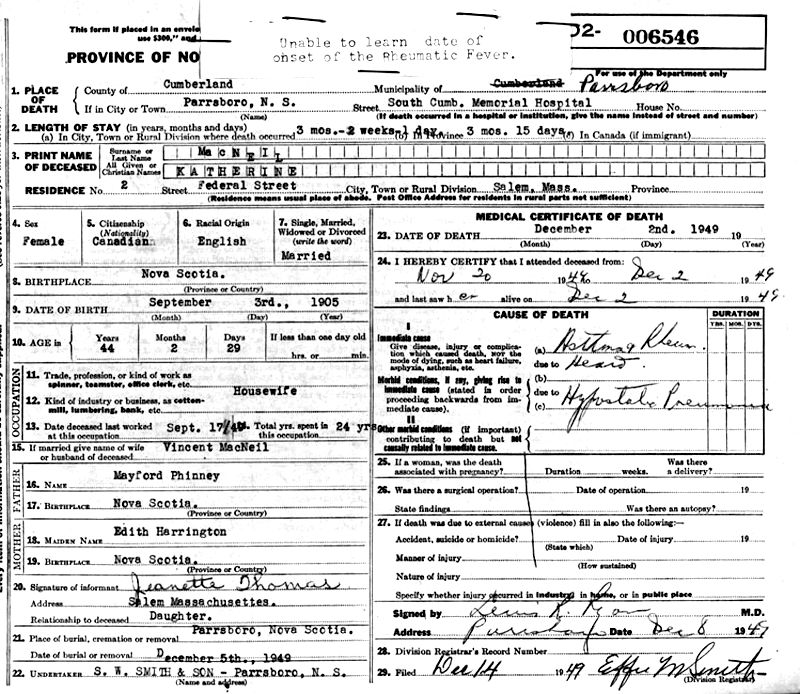 This form if placed in an envelo
use $300," and
Unable to learn date of
onset of the Rheumatic Fever.
D2- 006546
PROVINCE OF NO
For use of the Department only
1. PLACE OF DEATH
County of Cumberland Municipality of Cumberland Parrsboro
If in City or Town Parrsboro, N. S. Street South Cumb. Memorial Hospital House No.
(Name) (If death occurred in a hospital or institution, give the name instead of street and number)
2. LENGTH OF STAY (in years, months and days)
(a) In City, Town or Rural Division where death occurred 3 mos.-2 weeks-1 day. (b) In Province 3 mos. 15 days (c) In Canada (if immigrant)
3. PRINT NAME OF DECEASED
Surname or Last Name MacNEIL
All Given or Christian Names KATHERINE
RESIDENCE No 2 Street Federal Street City, Town or Rural Division Salem, Mass. Province
(Residence means usual place of abode. Post Office Address for residents in rural parts not sufficient)
4. Sex Female
5. Citizenship (Nationality) Canadian
6. Racial Origin English
7. Single, Married, Widowed or Divorced (write the word) Married
8. BIRTHPLACE Nova Scotia.
(Province or Country)
9. DATE OF BIRTH September 3rd., 1905
(Month) (Day) (Year)
10. AGE in Years 44 Months 2 Days 29 If less than one day old hrs. or min.
OCCUPATION
11. Trade, profession, or kind of work as spinner, teamster, office clerk, etc.
Housewife
12. Kind of industry or business, as cotton-mill, lumbering, bank, etc
13. Date deceased last worked at this occupation Sept. 17/49. Total yrs. spent in this occupation 24 yrs
15. If married give name of wife or husband of deceased Vincent MacNeil
FATHER
16. NAME Mayford Phinney
17. BIRTHPLACE Nova Scotia.
(Province or Country)
MOTHER
18. MAIDEN NAME Edith Harrington
19. BIRTHPLACE Nova Scotia.
(Province or Country)
20. Signature of informant Jeanette Thomas
Address Salem Massachusettes.
Relationship to deceased Daughter.
21. Place of burial, cremation or removal Parrsboro, Nova Scotia.
Date of burial or removal December 5th., 1949
22. UNDERTAKER S. W. SMITH & SON - Parrsboro, N. S.
(Name and address)
MEDICAL CERTIFICATE OF DEATH
23. DATE OF DEATH December 2nd. 1949 19
(Month) (Day) (Year)
24. I HEREBY CERTIFY that I attended deceased from:
Nov 20 1949 to Dec 2 1949
and last saw her alive on Dec 2 1949.
CAUSE OF DEATH
DURATION
YRS. MOS. DYS.
I
Immediate cause
Give disease, injury or complication which caused death, NOT the mode of dying, such as heart failure, asphyxia, asthenia, etc.
(a) Asthma & Rheum.
due to Heard
Morbid conditions, if any, giving rise to immediate cause (stated in order proceeding backwards from immediate cause).
(b)
due to
(c) Hypostatic Pneumonia
II
Other morbid conditions (if important) contributing to death but not causally related to immediate cause.
25. If a woman, was the death associated with pregnancy? Duration weeks. Was there a delivery?
26. Was there a surgical operation? Date of operation 19
State findings Was there an autopsy?
27. If death was due to external causes (violence) fill in also the following:—
Accident, suicide or homicide? Date of injury 19
(State which)
Manner of injury
(How sustained)
Nature of injury
Specify whether injury occurred in industry, in home, or in public place
Signed by Lewis R. Ryan M.D.
Address Parrsboro Date Dec 8 1949
28. Division Registrar's Record Number
29. Filed Dec 14 1949 Effie M Smith
(Division Registrar)